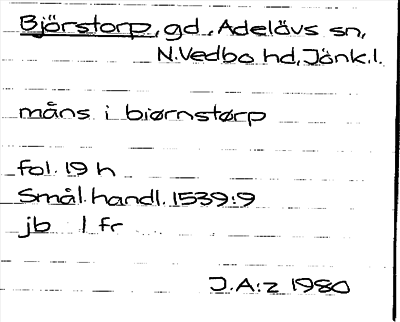 Björstorp, gd., Adelövs sn,
N.Vedbo hd, Jönk.l.
måns i biørnstørp
fol. 19 h
Smål.handl. 1539:9
jb 1 fr
J.A:z 1980